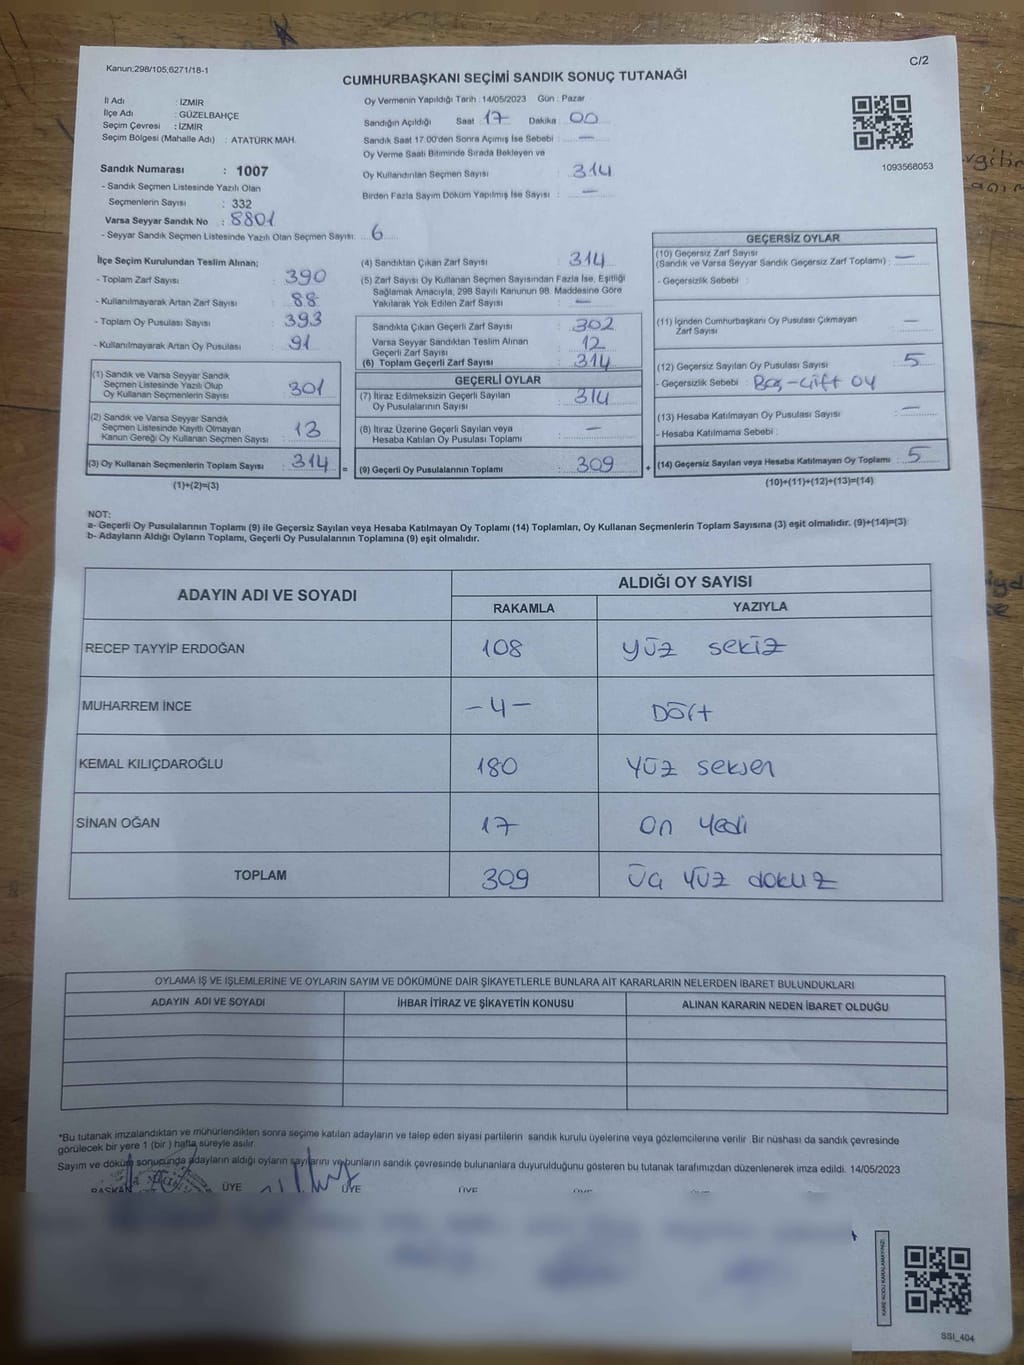 Kanun:298/105;6271/18-1
C/2
CUMHURBAŞKANI SEÇİMİ SANDIK SONUÇ TUTANAĞI
İl Adı : İZMİR
İlçe Adı : GÜZELBAHÇE
Seçim Çevresi : İZMİR
Seçim Bölgesi (Mahalle Adı) : ATATÜRK MAH.
Sandık Numarası : 1007
- Sandık Seçmen Listesinde Yazılı Olan
Seçmenlerin Sayısı : 332
Varsa Seyyar Sandık No : 8801
- Seyyar Sandık Seçmen Listesinde Yazılı Olan Seçmen Sayısı: 6
Oy Vermenin Yapıldığı Tarih : 14/05/2023 Gün : Pazar
Sandığın Açıldığı Saat 17 Dakika 00
Sandık Saat 17.00'den Sonra Açımış İse Sebebi : —
Oy Verme Saati Bitiminde Sırada Bekleyen ve
Oy Kullandırılan Seçmen Sayısı : 314
Birden Fazla Sayım Döküm Yapılmış İse Sayısı : —
1093568053
İlçe Seçim Kurulundan Teslim Alınan;
- Toplam Zarf Sayısı : 390
- Kullanılmayarak Artan Zarf Sayısı : 88
- Toplam Oy Pusulası Sayısı : 393
- Kullanılmayarak Artan Oy Pusulası : 91
(1) Sandık ve Varsa Seyyar Sandık
Seçmen Listesinde Yazılı Olup
Oy Kullanan Seçmenlerin Sayısı : 301
(2) Sandık ve Varsa Seyyar Sandık
Seçmen Listesinde Kayıtlı Olmayan
Kanun Gereği Oy Kullanan Seçmen Sayısı : 13
(3) Oy Kullanan Seçmenlerin Toplam Sayısı : 314 =
(1)+(2)=(3)
(4) Sandıktan Çıkan Zarf Sayısı : 314
(5) Zarf Sayısı Oy Kullanan Seçmen Sayısından Fazla İse, Eşitliği
Sağlamak Amacıyla, 298 Sayılı Kanunun 98. Maddesine Göre
Yakılarak Yok Edilen Zarf Sayısı : —
Sandıkta Çıkan Geçerli Zarf Sayısı : 302
Varsa Seyyar Sandıktan Teslim Alınan
Geçerli Zarf Sayısı : 12
(6) Toplam Geçerli Zarf Sayısı : 314
GEÇERLİ OYLAR
(7) İtiraz Edilmeksizin Geçerli Sayılan
Oy Pusulalarının Sayısı : 314
(8) İtiraz Üzerine Geçerli Sayılan veya
Hesaba Katılan Oy Pusulası Toplamı : —
(9) Geçerli Oy Pusulalarının Toplamı : 309 +
GEÇERSİZ OYLAR
(10) Geçersiz Zarf Sayısı
(Sandık ve Varsa Seyyar Sandık Geçersiz Zarf Toplamı) : —
- Geçersizlik Sebebi :
(11) İçinden Cumhurbaşkanı Oy Pusulası Çıkmayan
Zarf Sayısı : —
(12) Geçersiz Sayılan Oy Pusulası Sayısı : 5
- Geçersizlik Sebebi : Boş-çift oy
(13) Hesaba Katılmayan Oy Pusulası Sayısı : —
- Hesaba Katılmama Sebebi :
(14) Geçersiz Sayılan veya Hesaba Katılmayan Oy Toplamı : 5
(10)+(11)+(12)+(13)=(14)
NOT:
a- Geçerli Oy Pusulalarının Toplamı (9) ile Geçersiz Sayılan veya Hesaba Katılmayan Oy Toplamı (14) Toplamları, Oy Kullanan Seçmenlerin Toplam Sayısına (3) eşit olmalıdır. (9)+(14)=(3)
b- Adayların Aldığı Oyların Toplamı, Geçerli Oy Pusulalarının Toplamına (9) eşit olmalıdır.
ADAYIN ADI VE SOYADI
ALDIĞI OY SAYISI
RAKAMLA YAZIYLA
RECEP TAYYİP ERDOĞAN 108 yüz sekiz
MUHARREM İNCE -4- Dört
KEMAL KILIÇDAROĞLU 180 yüz seksen
SİNAN OĞAN 17 on yedi
TOPLAM 309 üç yüz dokuz
OYLAMA İŞ VE İŞLEMLERİNE VE OYLARIN SAYIM VE DÖKÜMÜNE DAİR ŞİKAYETLERLE BUNLARA AİT KARARLARIN NELERDEN İBARET BULUNDUKLARI
ADAYIN ADI VE SOYADI İHBAR İTİRAZ VE ŞİKAYETİN KONUSU ALINAN KARARIN NEDEN İBARET OLDUĞU
*Bu tutanak imzalandıktan ve mühürlendikten sonra seçime katılan adayların ve talep eden siyasi partilerin sandık kurulu üyelerine veya gözlemcilerine verilir. Bir nüshası da sandık çevresinde
görülecek bir yere 1 (bir) hafta süreyle asılır.
Sayım ve döküm sonucunda adayların aldığı oyların sayılarını ve bunların sandık çevresinde bulunanlara duyurulduğunu gösteren bu tutanak tarafımızdan düzenlenerek imza edildi. 14/05/2023
BAŞKAN ÜYE ÜYE ÜYE ÜYE ÜYE
KARE KODU KARALAMAYINIZ!
SSI_404